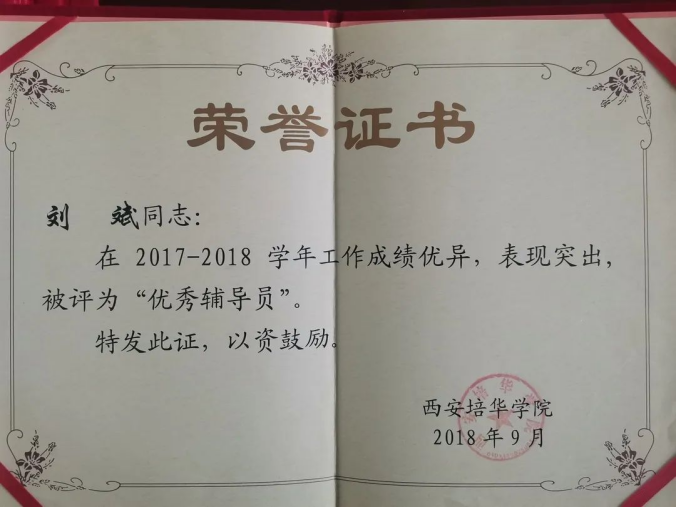 荣誉证书
刘 斌同志：
在 2017-2018 学年工作成绩优异，表现突出，
被评为“优秀辅导员”。
特发此证，以资鼓励。
西安培华学院
2018 年 9 月